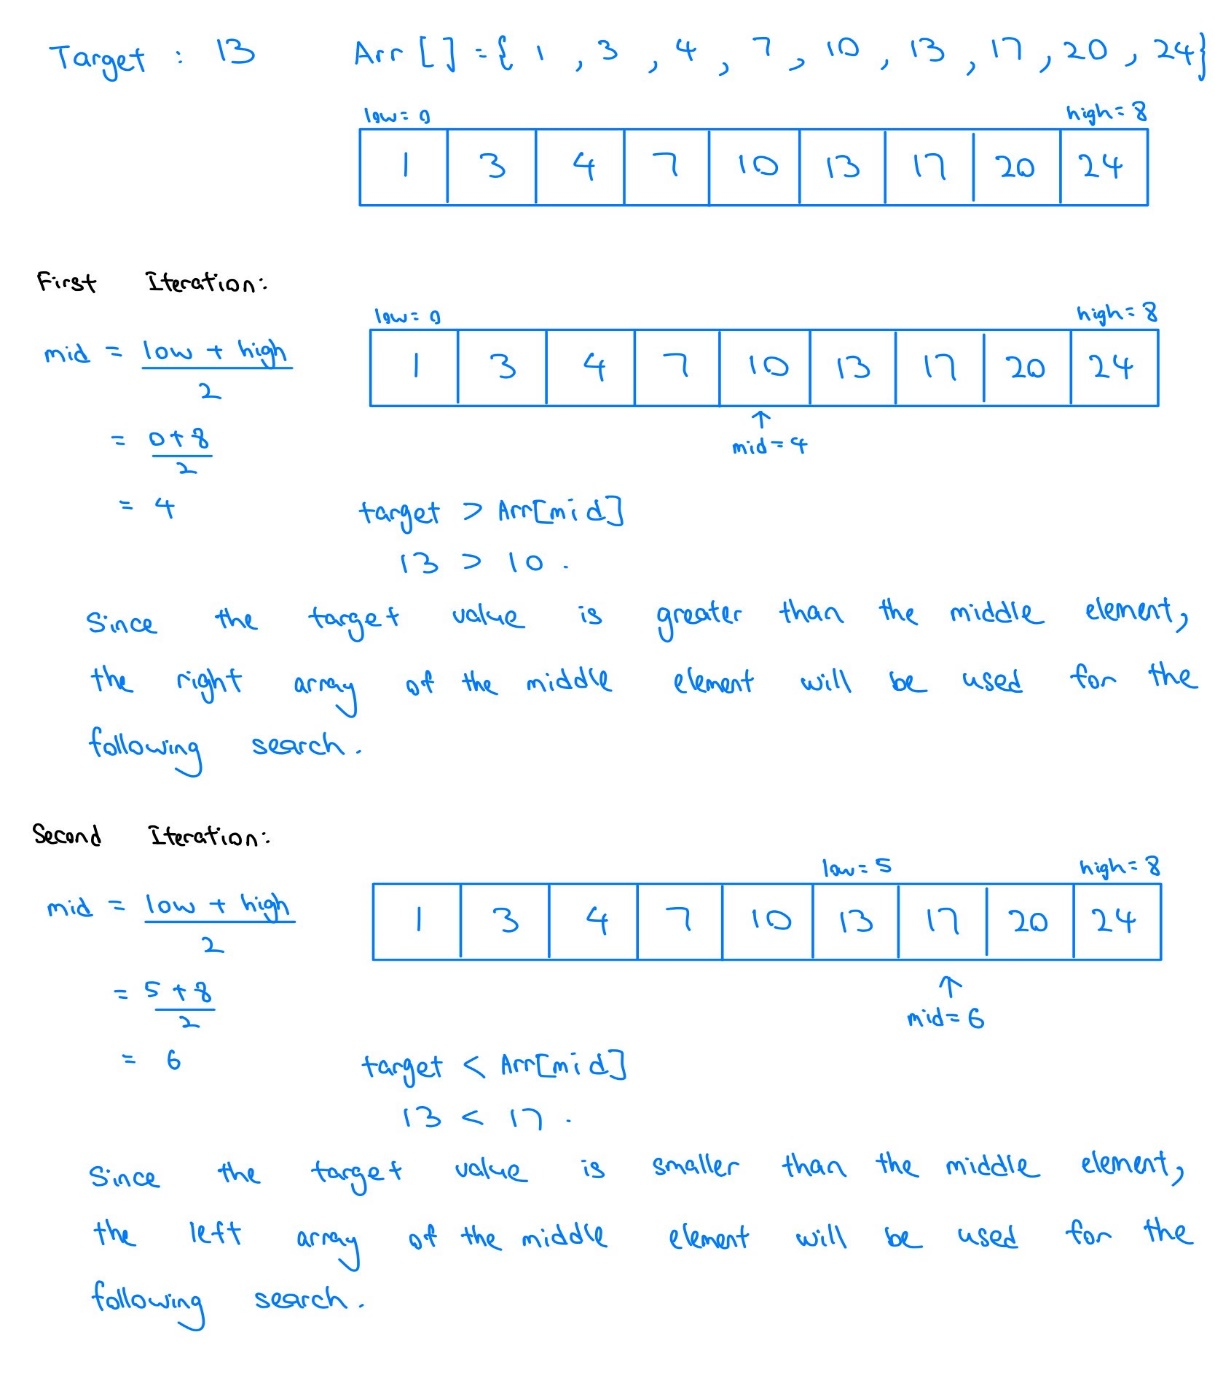 Target : 13 Arr [ ] = { 1 , 3 , 4 , 7 , 10 , 13 , 17 , 20 , 24}
low = 0 high = 8
1 3 4 7 10 13 17 20 24
First Iteration:
low = 0 high = 8
mid = low + high / 2
1 3 4 7 10 13 17 20 24
↑
mid = 4
= 0 + 8 / 2
= 4
target > Arr[mid]
13 > 10 .
Since the target value is greater than the middle element,
the right array of the middle element will be used for the
following search.
Second Iteration:
low = 5 high = 8
mid = low + high / 2
1 3 4 7 10 13 17 20 24
↑
mid = 6
= 5 + 8 / 2
= 6
target < Arr[mid]
13 < 17 .
Since the target value is smaller than the middle element,
the left array of the middle element will be used for the
following search.